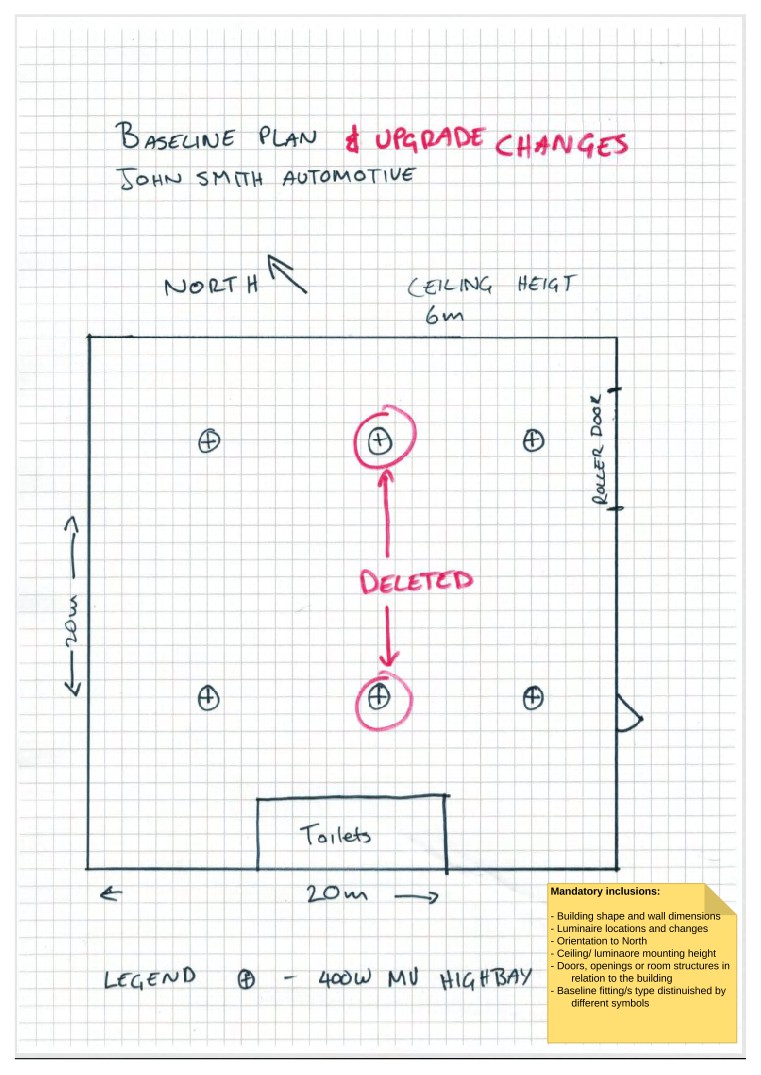 BASELINE PLAN & UPGRADE CHANGES
JOHN SMITH AUTOMOTIVE
NORTH
CEILING HEIGT
6m
ROLLER DOOR
DELETED
20m
Toilets
20m
LEGEND ⊕ - 400W MV HIGHBAY
Mandatory inclusions:
- Building shape and wall dimensions
- Luminaire locations and changes
- Orientation to North
- Ceiling/ luminaore mounting height
- Doors, openings or room structures in
relation to the building
- Baseline fitting/s type distinuished by
different symbols